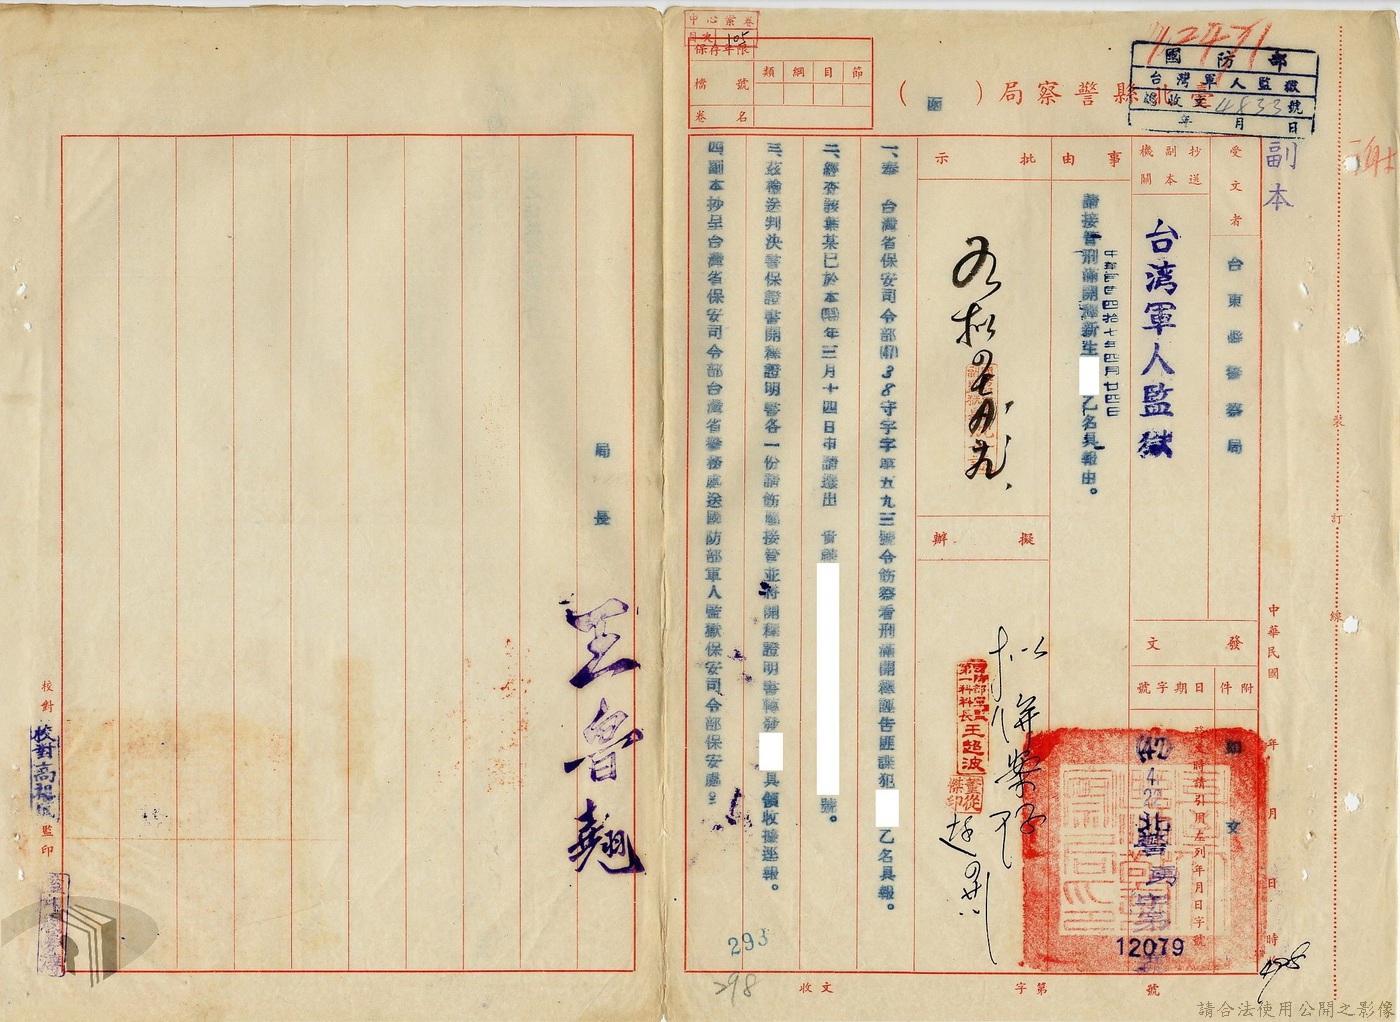 中心案卷
目次 105
保存年限
檔號
類 綱 目 節
卷名
臺北縣警察局（函）
國防部
台灣軍人監獄
總收文4833號
年 月 日
副本
受文者
台東縣警察局
抄送副本機關
台湾軍人監獄
事由
請接管刑滿開釋新生 乙名具報由。
中華民國四拾七年四月廿四日
批示
擬辦
國防部軍監
第一科科長王超波
發文
附件
日期字號
如文
發文時請引用左列年月日字號
(47)
4.22
北警
字第
12079
號
中華民國 年 月 日 時
裝
訂
線
一、奉 台灣省保安司令部(47)38守字字第五九三號令飭察看刑滿開釋誣告匪諜犯 乙名具報。
二、經查該葉某已於本(四七)年三月十四日申請遷出 貴轄 號。
三、茲檢送判決書保證書開釋證明書各一份請飭屬接管並將開釋證明書轉發 具領收據逕報。
四、副本抄呈台灣省保安司令部台灣省警務處送國防部軍人監獄保安司令部保安處。
293
298
收文
字第
號
局長
王魯翹
校對
監印
請合法使用公開之影像